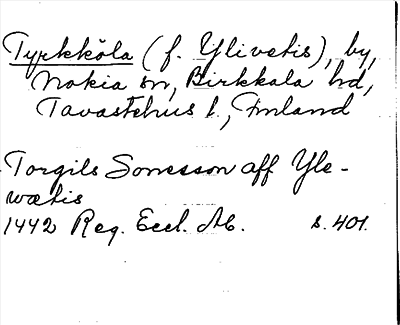 Tyrkköla (f. Ylivetis), by,
Nokia sn, Birkkala hd,
Tavastehus l., Finland
Torgils Sonesson aff Yle-
wætis
1442 Reg. Eccl. Ab. s. 401.